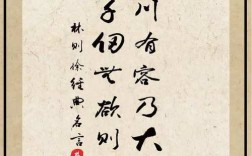 川有容乃大
千仞無欲则
林则徐经典名言